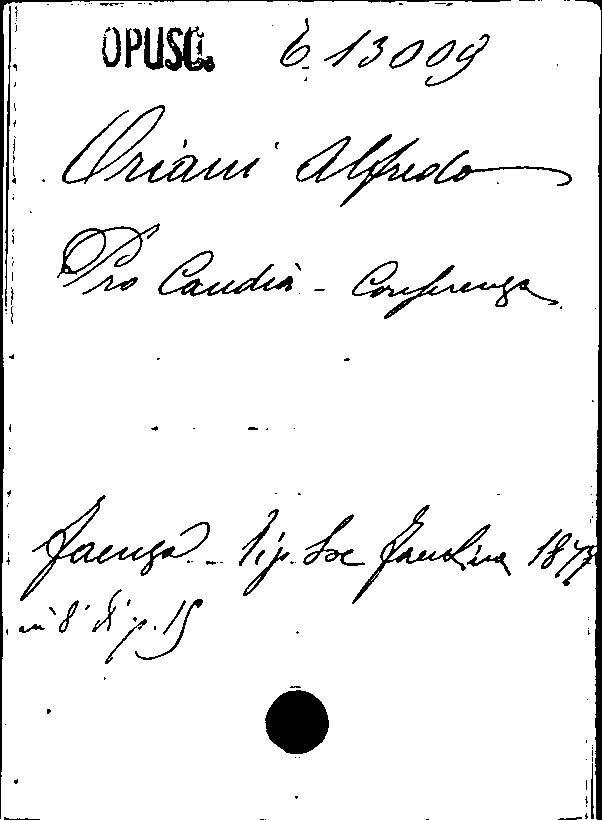 OPUSC. E. 13009
Oriani Alfredo
Pro Candia - Conferenza
Faenza - Tip. Soc Faentina 1897
in 8° di p. 15